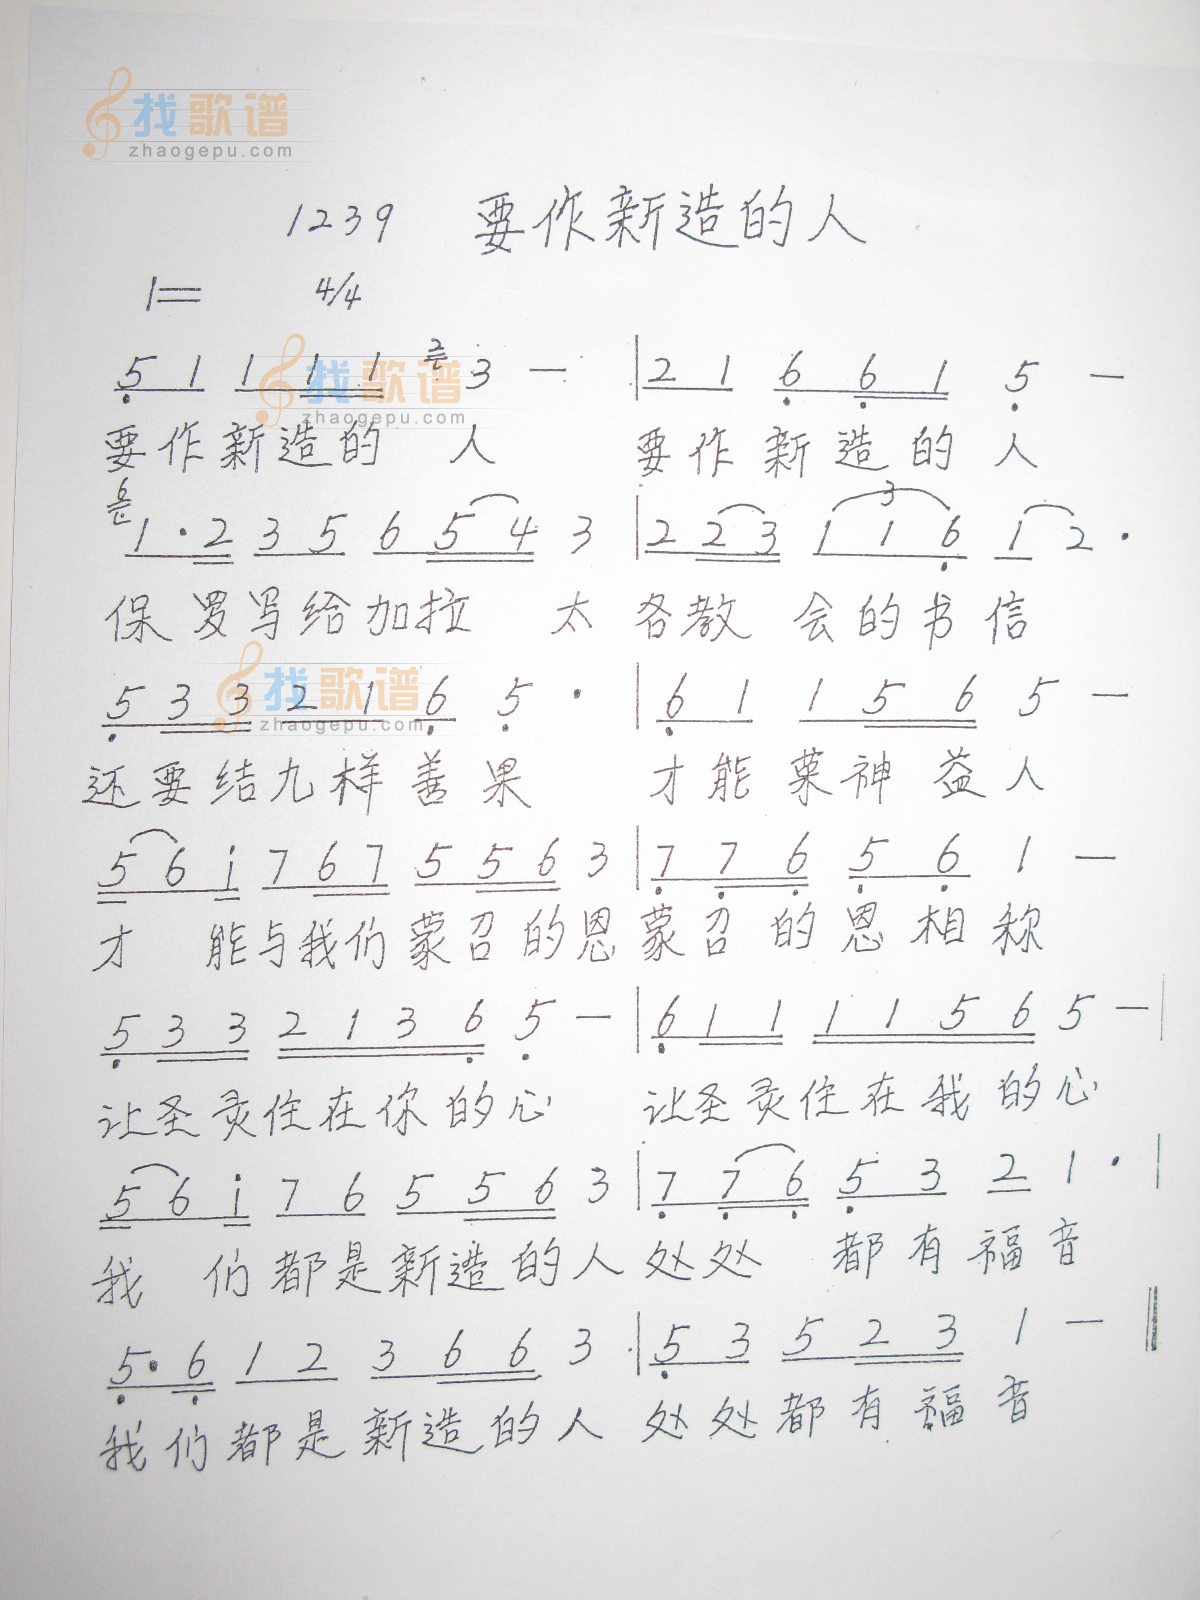 找歌谱
zhaogepu.com
1239 要作新造的人
1= 4/4
5 1 1 1 1 2 3 — | 2 1 6 6 1 5 —
找歌谱
zhaogepu.com
要作新造的 人 要作新造的人
6 1 · 2 3 5 6 5 4 3 | 2 2 3 1 1 6 1 2 ·
3
保罗写给加拉 太各教会的书信
找歌谱
zhaogepu.com
5 3 3 2 1 6 5 · | 6 1 1 5 6 5 —
还要结九样善果 才能荣神益人
5 6 i 7 6 7 5 5 6 3 | 7 7 6 5 6 1 —
才 能与我们蒙召的恩蒙召的恩相称
5 3 3 2 1 3 6 5 — | 6 1 1 1 1 5 6 5 — |
让圣灵住在你的心 让圣灵住在我的心
5 6 i 7 6 5 5 6 3 | 7 7 6 5 3 2 1 · |
我 们都是新造的人处处 都有福音
5 · 6 1 2 3 6 6 3 · | 5 3 5 2 3 1 — ‖
我们都是新造的人 处处都有福音